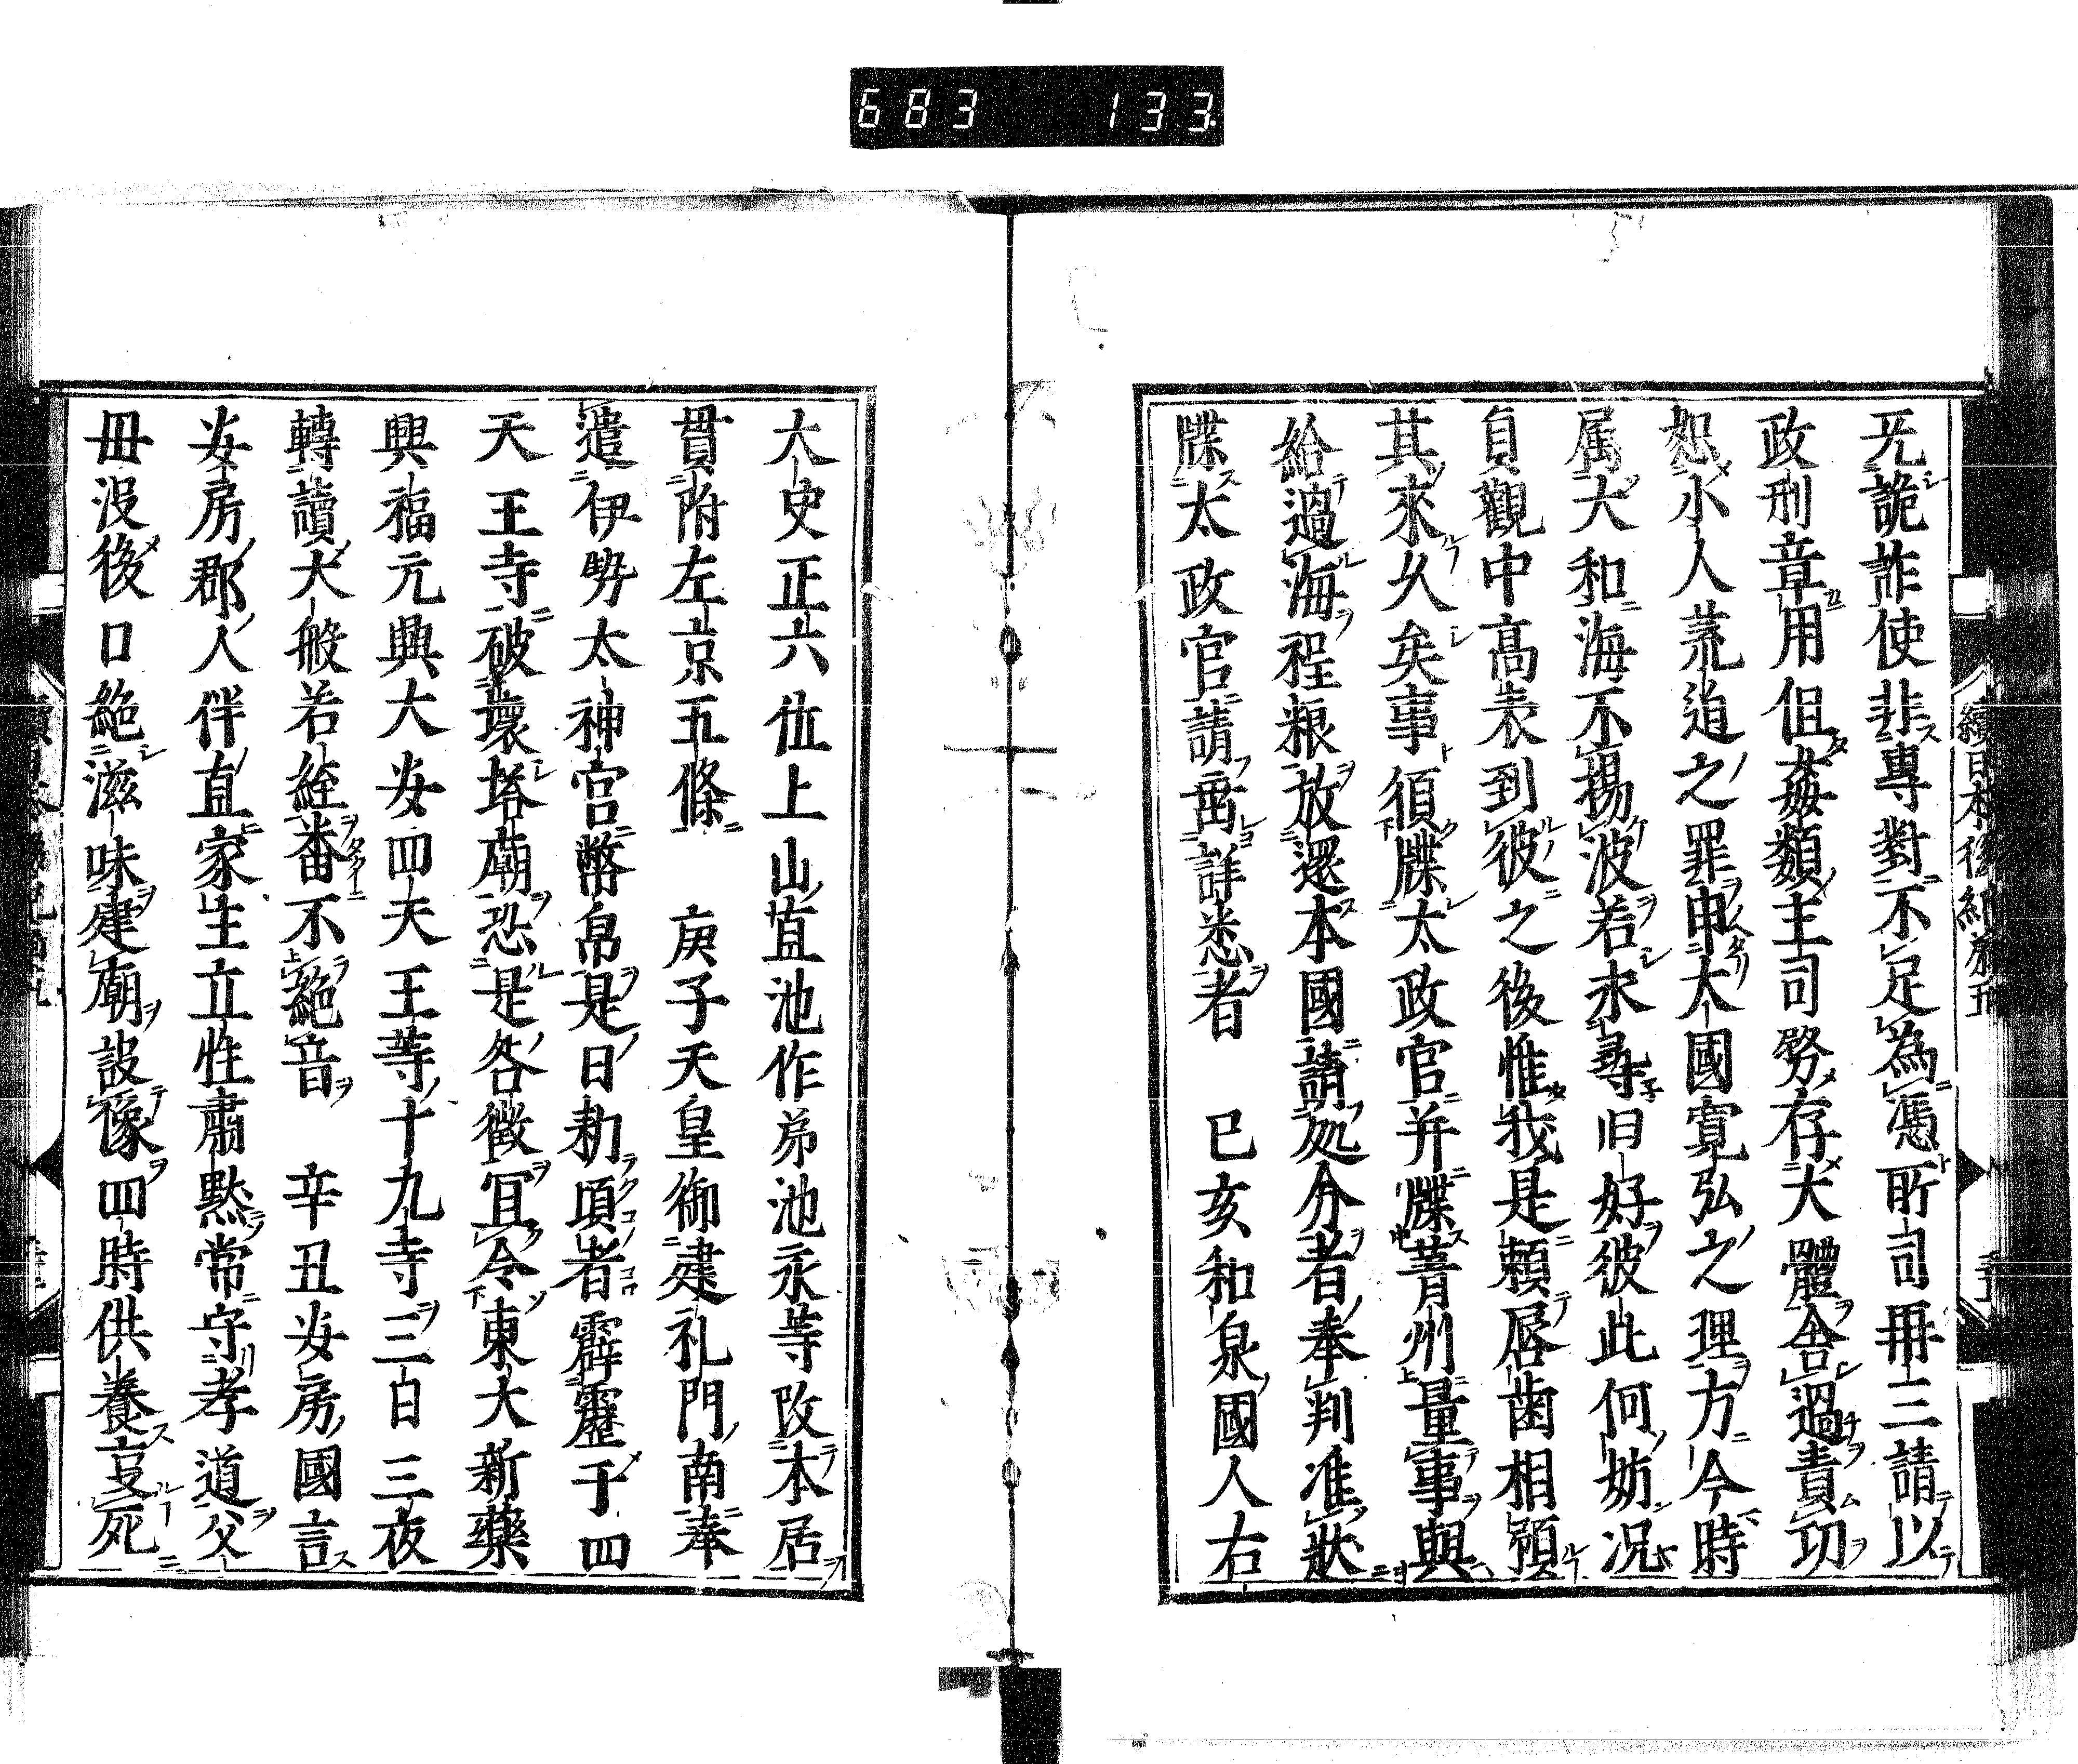 683 133
旡詭詐使非專對不足為憑所司再三請以
政刑章用但姦類主司務存大體舍過責功
恕小人荒迫之罪申大國寛弘之理方今時
属大和海不揚波若求尋旧好彼此何妨況
貞觀中高表到彼之後惟我是頼唇歯相須
其來久矣事須牒太政官并牒菁州量事與
給過海程粮放還本國請処分者奉判准狀
牒太政官請垂詳悉者 已亥和泉國人右
大史正六位上山直池作弟池永等改本居
貫附左京五條 庚子天皇御建礼門南奉
遣伊勢太神宮幣帛是日勅頃者霹靂于四
天王寺破壞塔廟恐是咎徴冝令東大新藥
興福元興大安四天王等十九寺三百三夜
轉讀大般若經畨不絶音 辛丑安房國言
安房郡人伴直家主立性肅黙常守孝道父
毋没後口絶滋味建廟設像四時供養㕝死